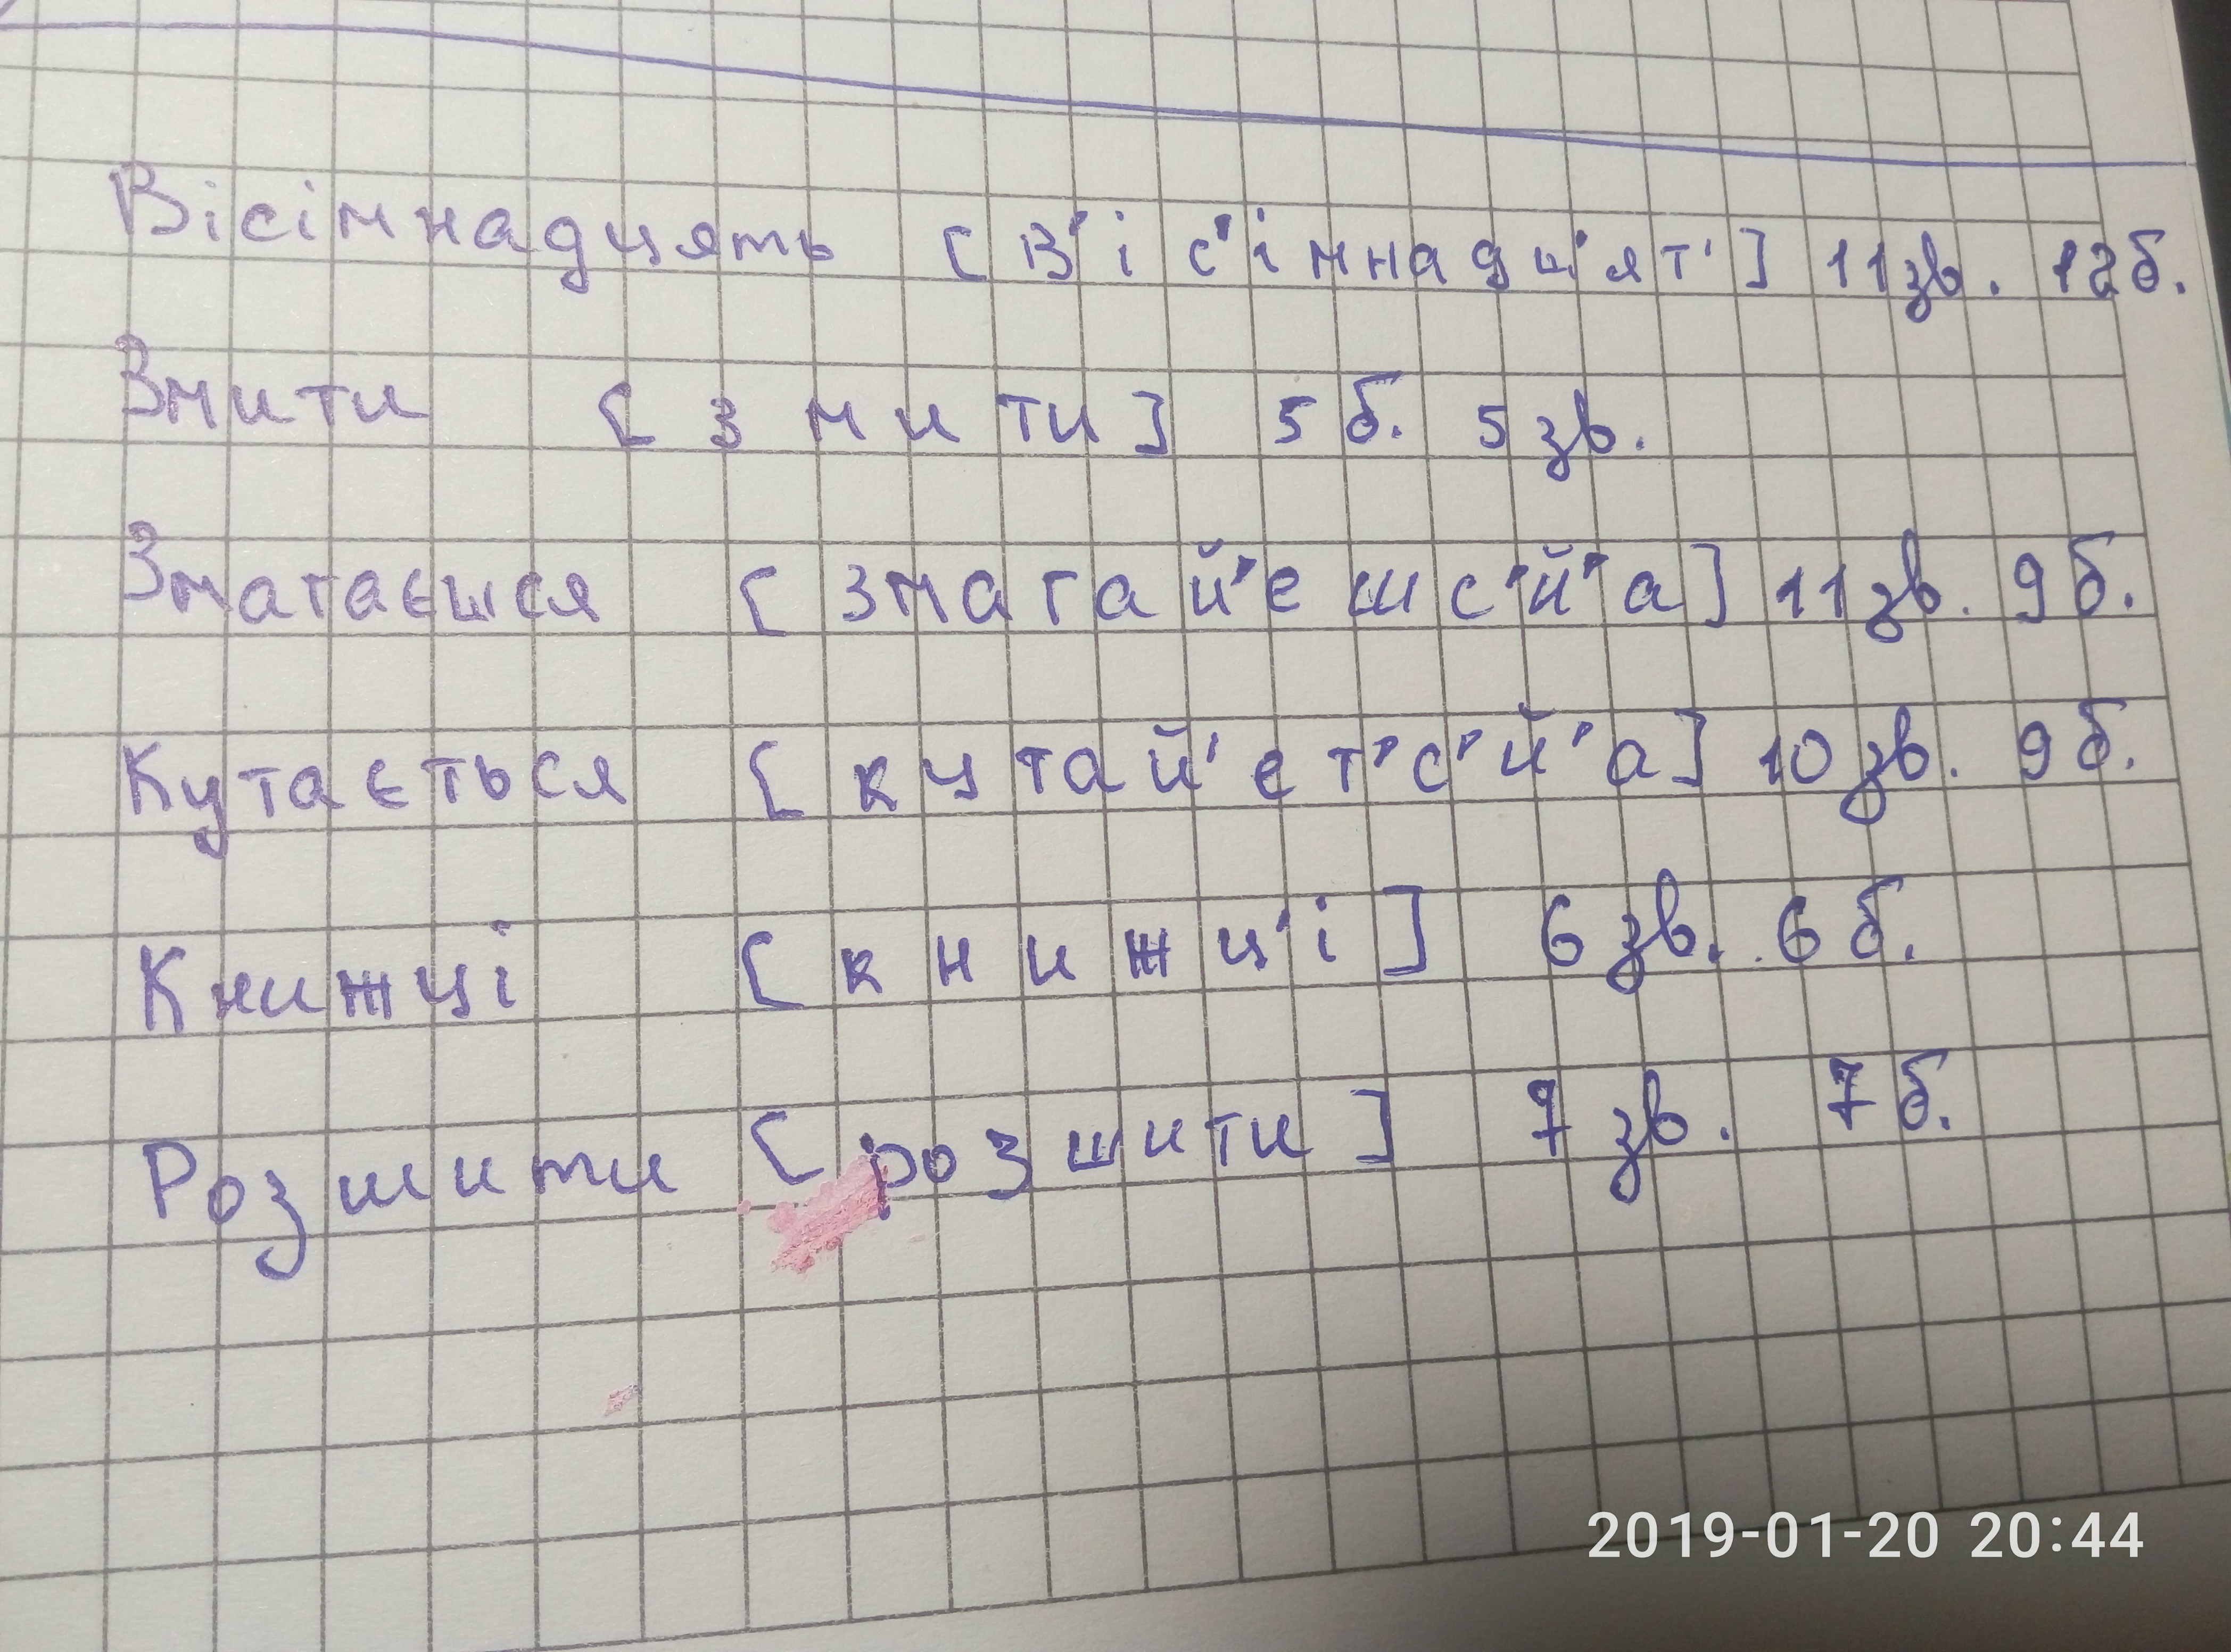 Вісімнадцять [ в' і с' і м н а д ц' я т' ] 11 зв. 12 б.
Змити [ з м и т и ] 5 б. 5 зв.
Змагаєшся [ з м а г а й' е ш с' й' а ] 11 зв. 9 б.
Кутається [ к у т а й' е т' с' й' а ] 10 зв. 9 б.
Книжці [ к н и ж ц' і ] 6 зв. 6 б.
Розшити [ р о з ш и т и ] 7 зв. 7 б.
2019-01-20 20:44